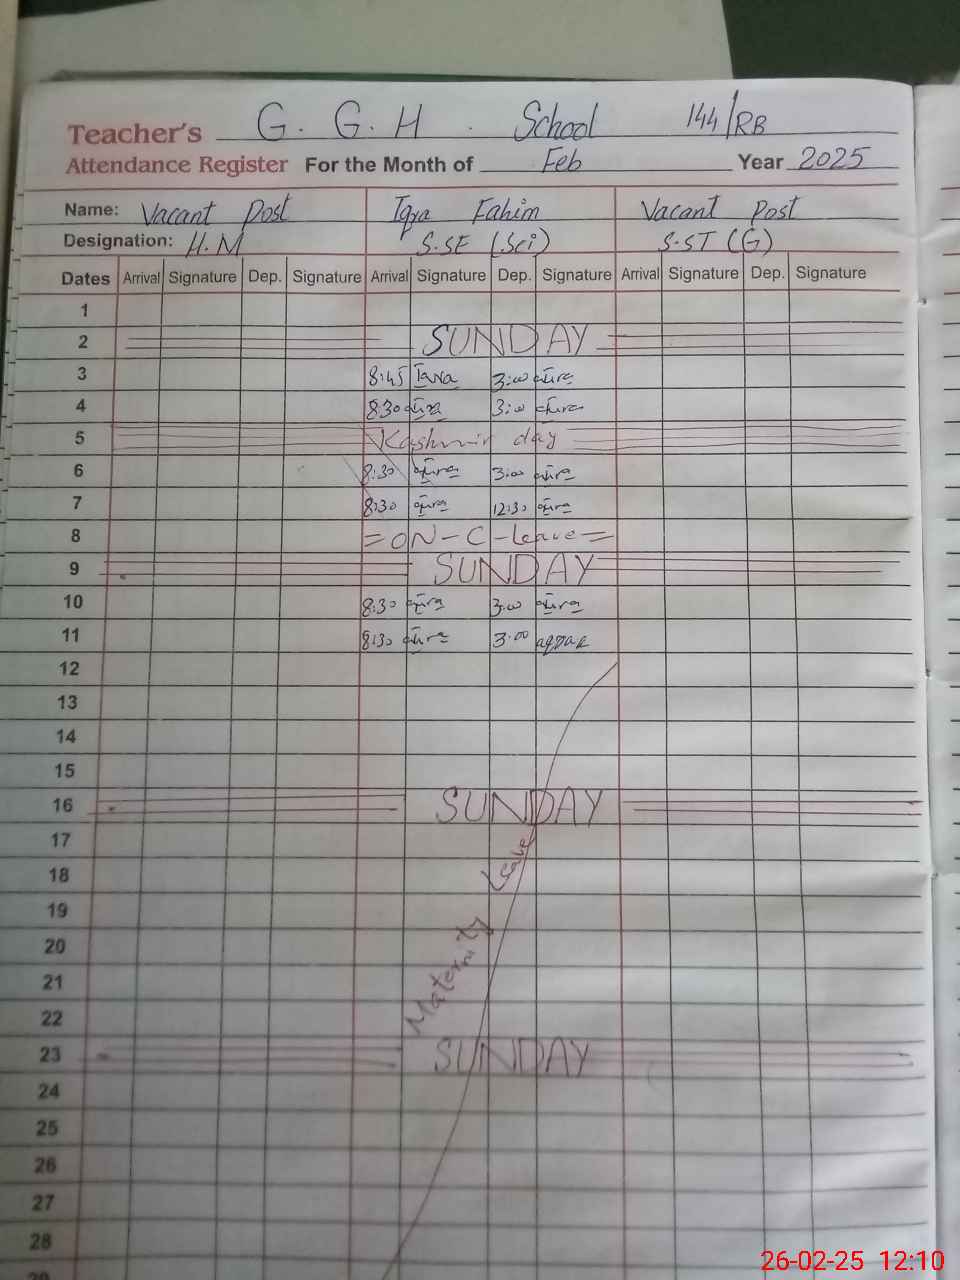 Teacher's G. G. H. School 144/RB
Attendance Register For the Month of Feb Year 2025
Name: Vacant Post Iqra Fahim Vacant Post
Designation: H.M S.SE (Sci) S.ST (G)
Dates Arrival Signature Dep. Signature Arrival Signature Dep. Signature Arrival Signature Dep. Signature
1
2 SUNDAY
3 8:45 3:00
4 8:30 3:00
5 Kashmir day
6 8:30 3:00
7 8:30 12:30
8 = ON - C - Leave =
9 SUNDAY
10 8:30 3:00
11 8:30 3:00
12
13
14
15
16 SUNDAY
17
18
19
20
21
22
Maternity Leave
23 SUNDAY
24
25
26
27
28
29
26-02-25 12:10